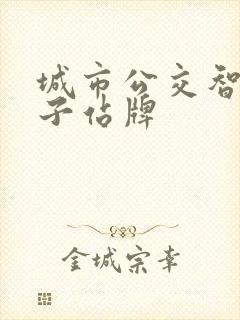 城市公交智
子站牌
金城宗幸